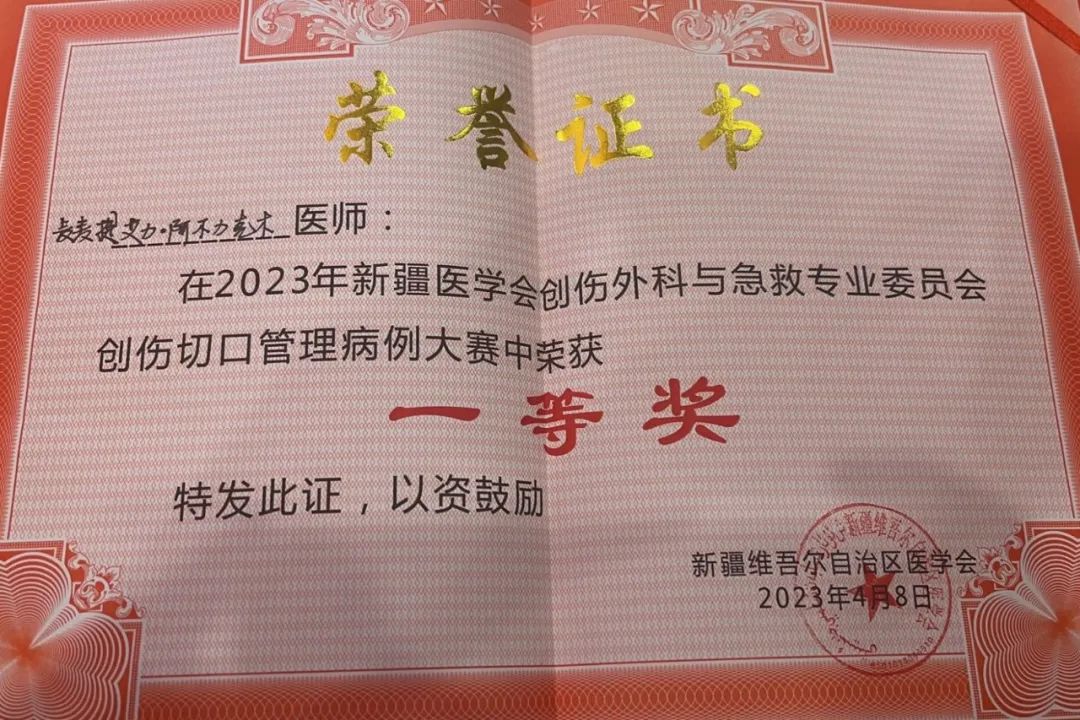 荣誉证书
艾力·阿不力克木医师：
在2023年新疆医学会创伤外科与急救专业委员会
创伤切口管理病例大赛中荣获
一等奖
特发此证，以资鼓励
新疆维吾尔自治区医学会
2023年4月8日